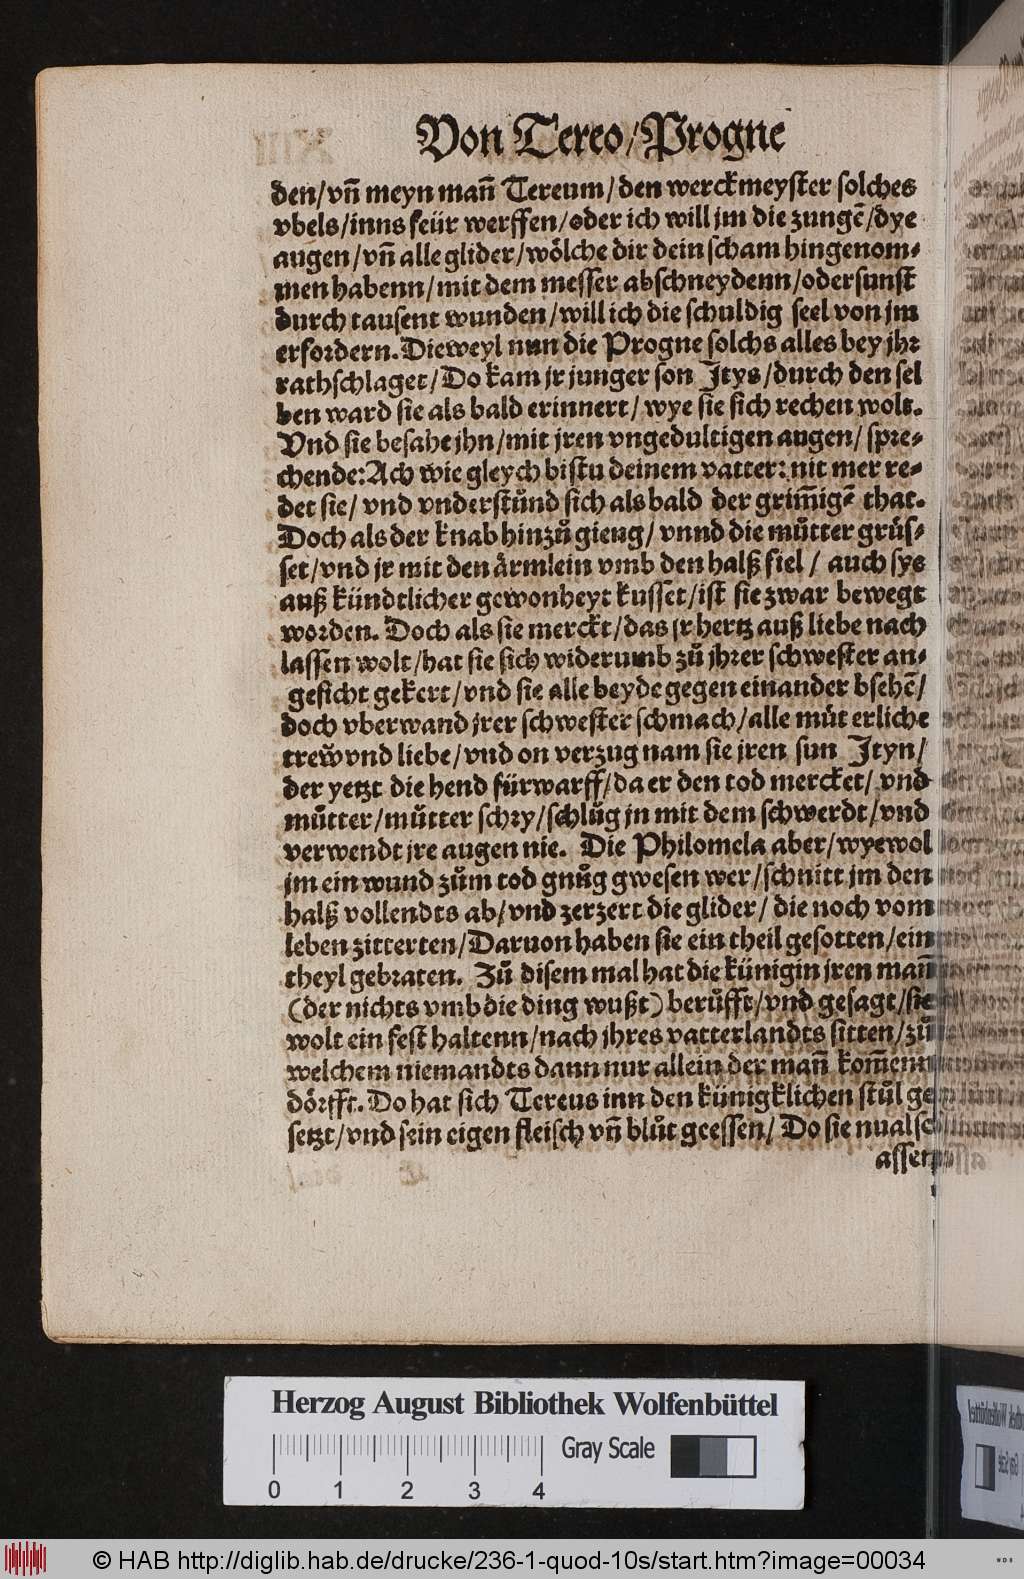 Von Tereo/Progne
den/vñ meyn mañ Tereum/den werckmeyster solches
vbels/inns feür werffen/oder ich will jm die zungē/dye
augen/vñ alle glider/wölche dir dein scham hingenom-
men habenn/mit dem messer abschneydenn/oder sunst
durch tausent wunden/will ich die schuldig seel von jm
erfordern. Dieweyl nun die Progne solchs alles bey jhr
rathschlaget/Do kam jr junger son Jtys/durch den sel
ben ward sie als bald erinnert/wye sie sich rechen wolt.
Vnd sie besahe jhn/mit jren vngedultigen augen/spre-
chende:Ach wie gleych bistu deinem vatter: nit mer re-
det sie/vnd vnderstůnd sich als bald der grim̄igē that.
Doch als der knab hinzů gieng/vnnd die můtter grůs-
set/vnd jr mit den ärmlein vmb den halß fiel / auch sye
auß kündtlicher gewonheyt kusset/ist sie zwar bewegt
worden. Doch als sie merckt/das jr hertz auß liebe nach
lassen wolt/hat sie sich widerumb zů jhrer schwester an-
gesicht gekert/vnd sie alle beyde gegen einander bsehē/
doch vberwand jrer schwester schmach/alle můt erliche
trew vnd liebe/vnd on verzug nam sie jren sun Jtyn/
der yetzt die hend fürwarff/da er den tod mercket/vnd
můtter/můtter schry/schlůg jn mit dem schwerdt/vnd
verwendt jre augen nie. Die Philomela aber/wyewol
jm ein wund zům tod gnůg gwesen wer/schnitt jm den
halß vollendts ab/vnd zerzert die glider/die noch vom
leben zitterten/Daruon haben sie ein theil gesotten/ein
theyl gebraten. Zů disem mal hat die künigin jren mañ
(der nichts vmb die ding wußt) berůfft/vnd gesagt/sie
wolt ein fest haltenn/nach jhres vatterlandts sitten/zů
welchem niemandts dann nur allein der mañ kom̄enn
dörfft. Do hat sich Tereus inn den künigklichen stůl ge
setzt/vnd sein eigen fleisch vñ blůt geessen/Do sie nu also
assen
Herzog August Bibliothek Wolfenbüttel
Gray Scale
0 1 2 3 4
© HAB http://diglib.hab.de/drucke/236-1-quod-10s/start.htm?image=00034